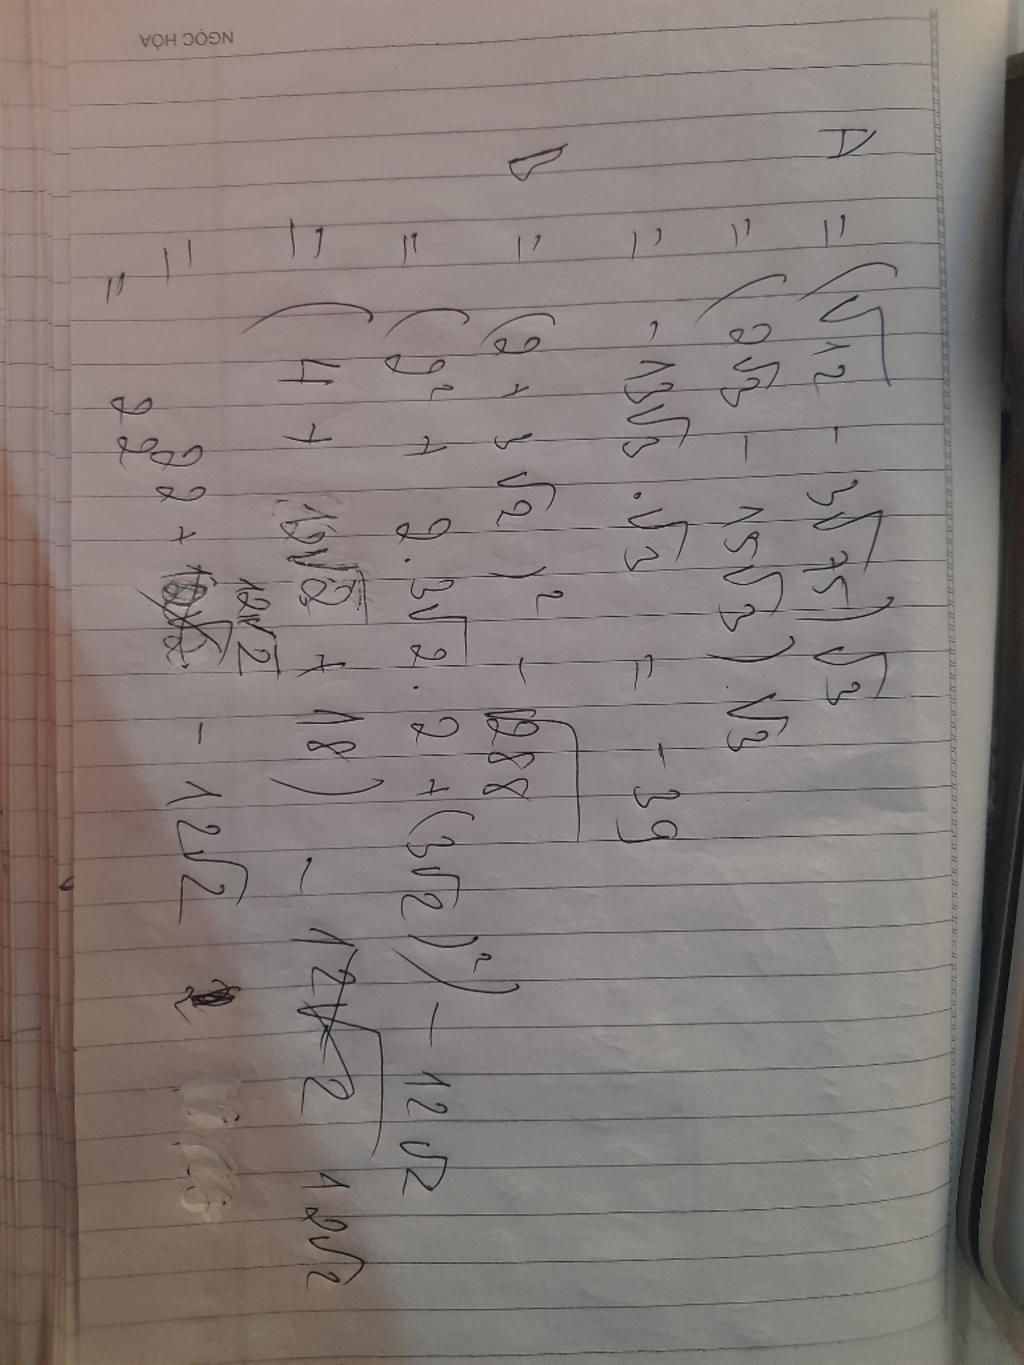 NGỌC HÒA
A = (√12 - 3√75) √3
= (2√3 - 15√3) . √3
= - 13√3 . √3 = - 39
B = (2 + 3√2)² - √288
= (2² + 2.3√2.2 + (3√2)²) - 12√2
= (4 + 12√2 + 18) - 12√2
= 22 + 12√2 - 12√2
= 22